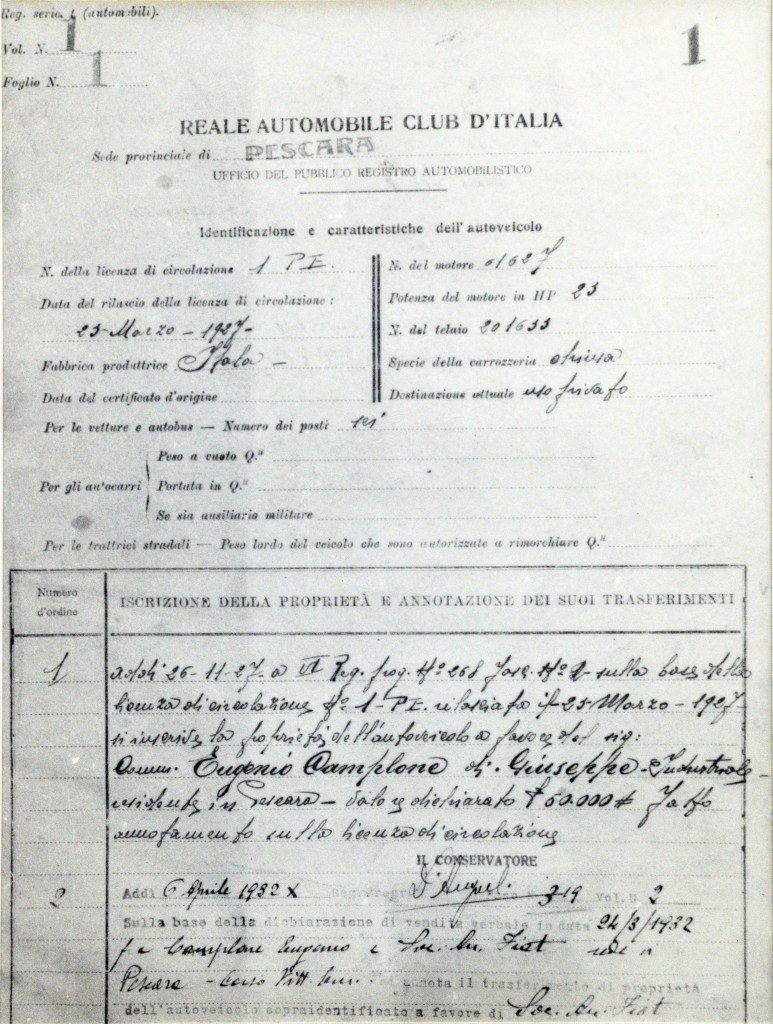 Reg. serie I (automobili).
Vol. N. 1
Foglio N. 1
1
REALE AUTOMOBILE CLUB D'ITALIA
Sede provinciale di PESCARA
UFFICIO DEL PUBBLICO REGISTRO AUTOMOBILISTICO
Identificazione e caratteristiche dell'autoveicolo
N. della licenza di circolazione 1 PE.
Data del rilascio della licenza di circolazione:
25 - Marzo - 1927 -
Fabbrica produttrice Itala -
Data del certificato d'origine
N. del motore 61627
Potenza del motore in HP 23
N. del telaio 201633
Specie della carrozzeria chiusa
Destinazione attuale uso privato
Per le vetture e autobus — Numero dei posti sei
Per gli autocarri
Peso a vuoto Q.li
Portata in Q.li
Se sia ausiliario militare
Per le trattrici stradali — Peso lordo del veicolo che sono autorizzate a rimorchiare Q.li
Numero d'ordine
ISCRIZIONE DELLA PROPRIETÀ E ANNOTAZIONE DEI SUOI TRASFERIMENTI
1
addì 26-11-27- a VI Reg. prog. N° 268 sulla base della
licenza di circolazione N° 1-PE. rilasciata il 25 Marzo - 1927
si inscrive la proprietà dell'autoveicolo a favore del sig:
Comm. Eugenio Camplone di Giuseppe - Industriale -
residente in Pescara - valore dichiarato £ 50.000
annotamento sulla licenza di circolazione
IL CONSERVATORE
2
Addì 6 Aprile 1932 X 319 Vol. N. 2
Sulla base della dichiarazione di vendita verbale in data 24/3/1932
fra Camplone Eugenio e Soc. An. Fiat sede a
Pescara - Corso Vitt. Em. si annota il trasferimento di proprietà
dell'autoveicolo sopraidentificato a favore di Soc. An. Fiat